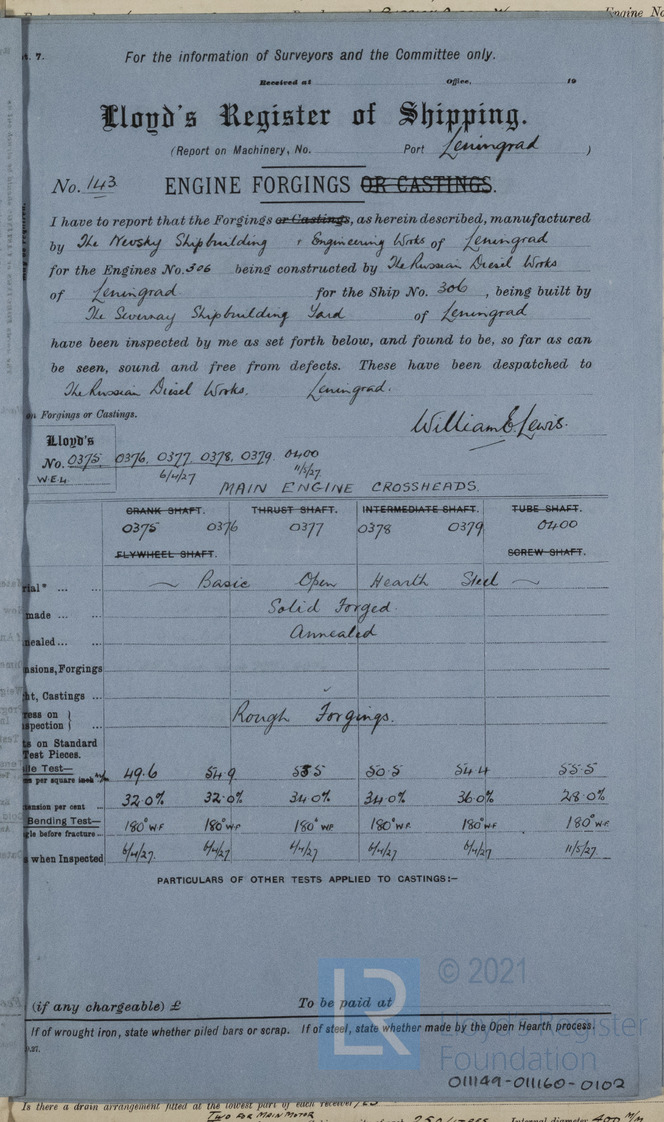 Engine No
t. 7.
For the information of Surveyors and the Committee only.
Received at Office, 19
Lloyd's Register of Shipping.
(Report on Machinery, No. Port Leningrad )
No. 143 ENGINE FORGINGS OR CASTINGS.
I have to report that the Forgings or Castings, as herein described, manufactured
by The Newsky Shipbuilding & Engineering Works of Leningrad
for the Engines No. 306 being constructed by The Russian Diesel Works
of Leningrad for the Ship No. 306, being built by
The Severnay Shipbuilding Yard of Leningrad
have been inspected by me as set forth below, and found to be, so far as can
be seen, sound and free from defects. These have been despatched to
The Russian Diesel Works. Leningrad.
on Forgings or Castings.
William E. Lewis.
Lloyd's
No. 0375, 0376, 0377, 0378, 0379. 0400
W.E.L. 6/4/27 11/5/27
MAIN ENGINE CROSSHEADS.
CRANK SHAFT. THRUST SHAFT. INTERMEDIATE SHAFT. TUBE SHAFT.
0375 0376 0377 0378 0379 0400
FLYWHEEL SHAFT. SCREW SHAFT.
rial* ... ... Basic Open Hearth Steel
made ... ... Solid Forged.
nealed ... ... Annealed
nsions, Forgings
ht, Castings ...
ress on
spection Rough Forgings.
ts on Standard
Test Pieces.
ile Test—
per square inch 49.6 54.9 53.5 50.5 54.4 55.5
ension per cent ... 32.0% 32.0% 34.0% 34.0% 36.0% 28.0%
Bending Test—
gle before fracture ... 180° W.F. 180° W.F. 180° W.F. 180° W.F. 180° W.F. 180° W.F.
s when Inspected 6/4/27. 6/4/27 6/4/27 6/4/27 6/4/27 11/5/27.
PARTICULARS OF OTHER TESTS APPLIED TO CASTINGS:—
LR
© 2021
Lloyd's Register
Foundation
(if any chargeable) £ To be paid at
If of wrought iron, state whether piled bars or scrap. If of steel, state whether made by the Open Hearth process.
.27.
011149-011160-0102
Is there a drain arrangement fitted at the lowest part of each receiver yes
TWO FOR MAIN MOTOR
Internal diameter 400 m/m